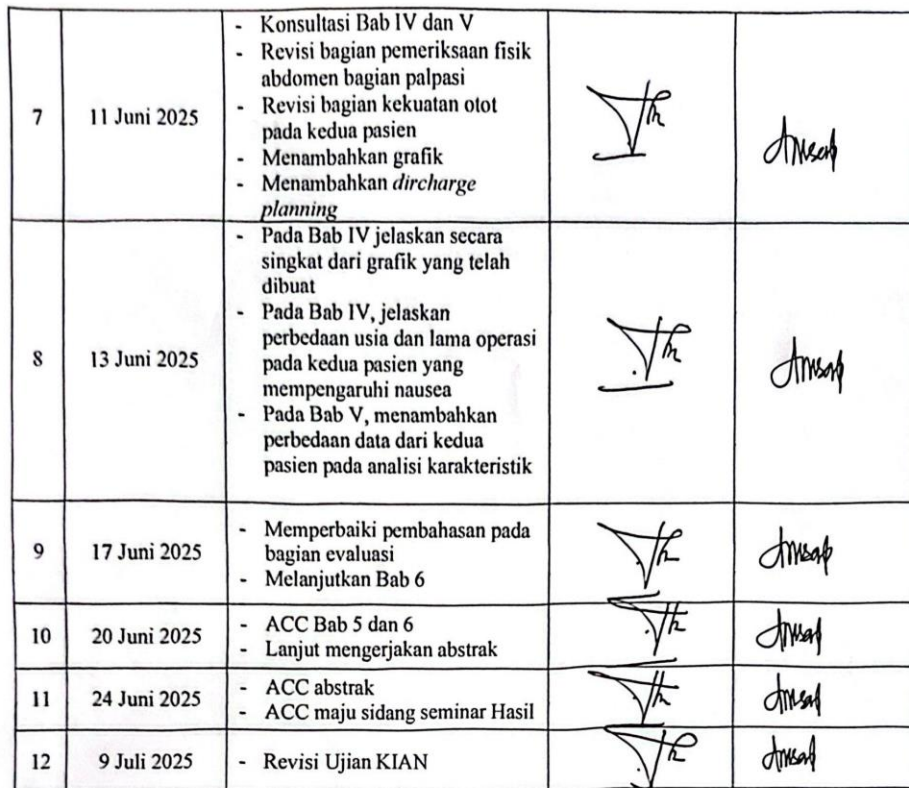 7
11 Juni 2025
- Konsultasi Bab IV dan V
- Revisi bagian pemeriksaan fisik
abdomen bagian palpasi
- Revisi bagian kekuatan otot
pada kedua pasien
- Menambahkan grafik
- Menambahkan dircharge
planning
8
13 Juni 2025
- Pada Bab IV jelaskan secara
singkat dari grafik yang telah
dibuat
- Pada Bab IV, jelaskan
perbedaan usia dan lama operasi
pada kedua pasien yang
mempengaruhi nausea
- Pada Bab V, menambahkan
perbedaan data dari kedua
pasien pada analisi karakteristik
9
17 Juni 2025
- Memperbaiki pembahasan pada
bagian evaluasi
- Melanjutkan Bab 6
10
20 Juni 2025
- ACC Bab 5 dan 6
- Lanjut mengerjakan abstrak
11
24 Juni 2025
- ACC abstrak
- ACC maju sidang seminar Hasil
12
9 Juli 2025
- Revisi Ujian KIAN